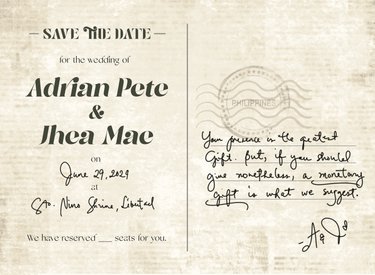 — SAVE THE DATE —
for the wedding of
Adrian Pete
&
Jhea Mae
on
June 29, 2029
at
Sto. Nino Shrine, Libertad
We have reserved ___ seats for you.
PHILIPPINES
Your presence is the greatest
Gift. But, if you should
give nonetheless, a monetary
gift is what we suggest.
- A & J